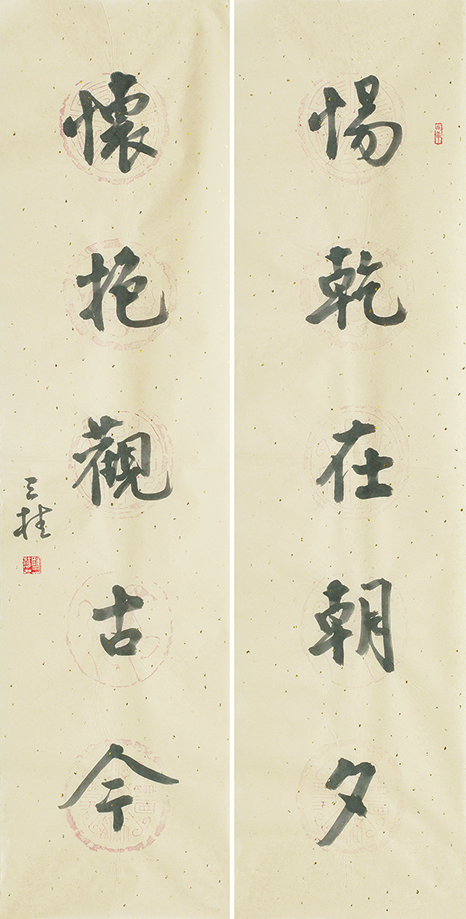 惕乾在朝夕
懷抱觀古今
三桂